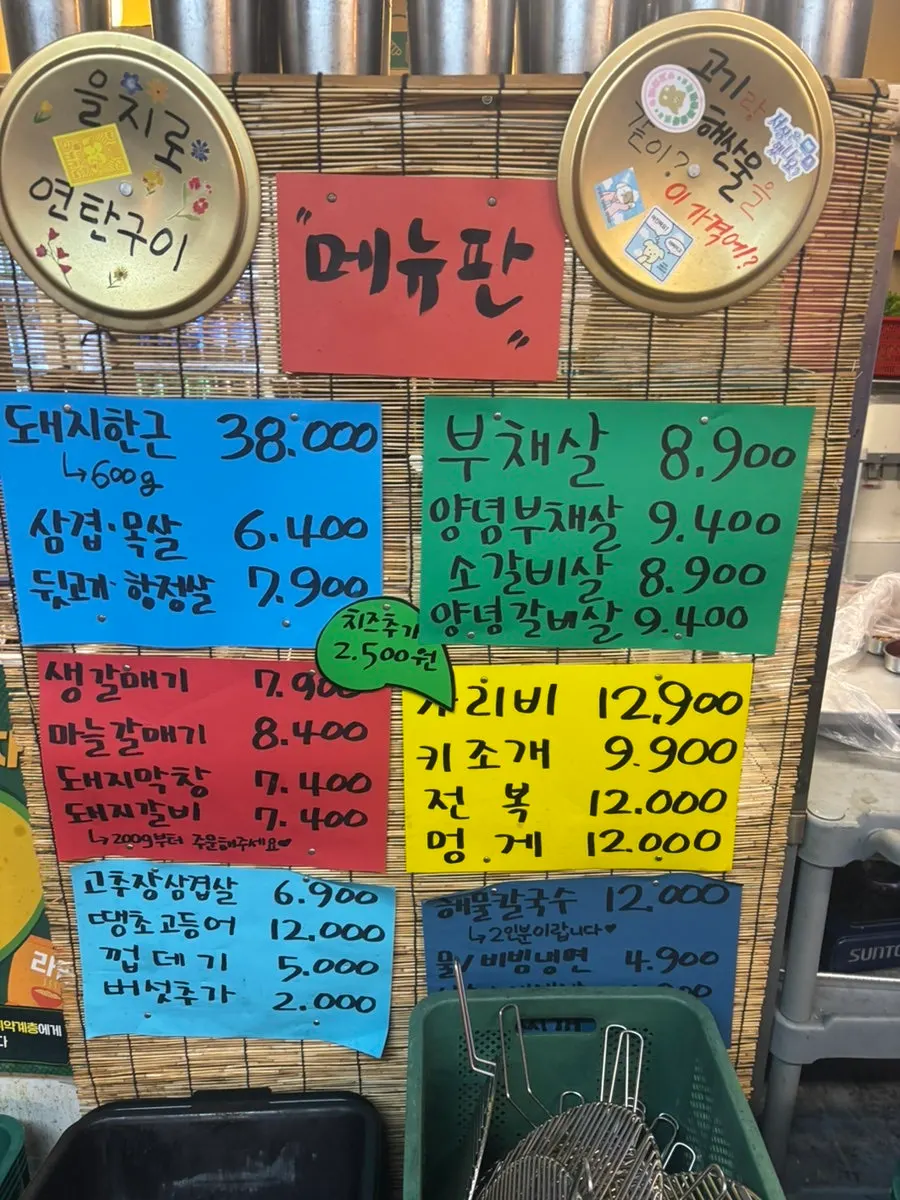 을지로
연탄구이
고기랑
해산물을
같이?
이 가격에?
"메뉴판"
돼지한근 38.000
↳600g
삼겹·목살 6.400
뒷고기·항정살 7.900
부채살 8.900
양념부채살 9.400
소갈비살 8.900
양념갈비살 9.400
치즈추가
2.500원
생갈매기 7.900
마늘갈매기 8.400
돼지막창 7.400
돼지갈비 7.400
↳200g부터 주문해주세요♥
가리비 12,900
키조개 9.900
전복 12.000
멍게 12.000
고추장삼겹살 6.900
땡초고등어 12,000
껍데기 5.000
버섯추가 2.000
해물칼국수 12,000
↳2인분이랍니다♥
물/비빔냉면 4.900
찌개
SUNTO